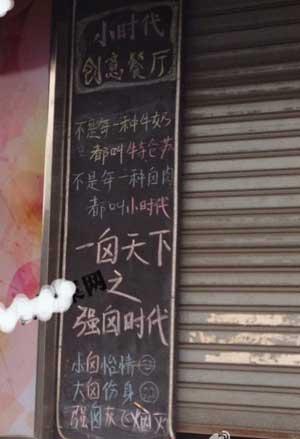 小时代
创意餐厅
不是每一种牛奶
都叫特仑苏
不是每一种囟肉
都叫小时代
一囟天下
之
强囟时代
小囟怡情
大囟伤身
强囟灰飞烟灭
网